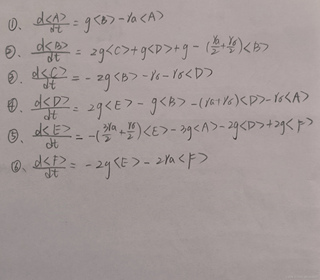 ①. d<A>/dt = g<B> - γa<A>
②. d<B>/dt = 2g<C> + g<D> + g - (γa/2 + γσ/2)<B>
③. d<C>/dt = -2g<B> - γσ - γσ<D>
④. d<D>/dt = 2g<E> - g<B> - (γa+γσ)<D> - γσ<A>
⑤. d<E>/dt = -(3γa/2 + γσ/2)<E> - 3g<A> - 2g<D> + 2g<F>
⑥. d<F>/dt = -2g<E> - 2γa<F>